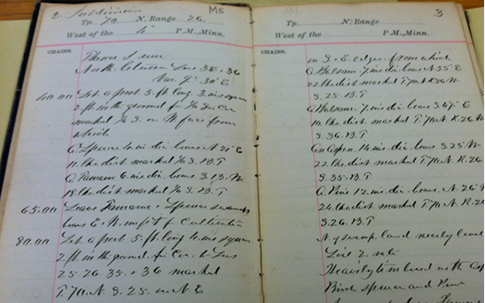 2 Subdivisions MS
Tp. 70 N. Range 26
West of the 5 P.M., Minn.
CHAINS.
Thence I run
North between Secs 35 & 36
Var. 9° 30' E
40.00 Set a post 5 ft. long 3 ins square
2 ft. in the ground for 1/4 Sec Cor
marked 1/4 S. on W face from
which
A Spruce 4 in. dia. bears N 21° E
11 lks. dist. marked 1/4 S. B.T.
A Tamarac 6 in. dia. bears S 13° W
18 lks dist marked 1/4 S. B.T.
65.00 Leave Tamarac & Spruce swamp
bears E & W unfit for Cultivation
80.00 Set a post 5 ft. long 4 ins square
2 ft. in the ground for Cor. to Secs
25. 26. 35. & 36 marked
T. 70 N S. 25 on N E
3
Tp. N. Range
West of the P.M., Minn.
CHAINS.
on S & E edges from which
A Balsam 7 in. dia. bears N 35° E
22 lks dist marked T 70 N R. 26 W
S. 25. B.T
A Balsam 7 in. dia. bears S 47° E
10 lks. dist marked T 70 N R. 26 W
S. 36. B.T
An Aspen 14 in. dia. bears S 25° W
22 lks dist marked T. 70 N. R. 26
S. 35. B.T
A Pine 12 in. dia. bears N. 26° W
24 lks dist marked T 70 N R. 26
S. 26. B.T
N of swamp Land nearly level
Soil 2 rate
Heavily timbered with
Birch Spruce and Pine